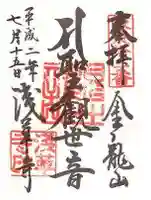 奉拝 金龍山
聖観世音
平成二年
七月十五日
浅草寺